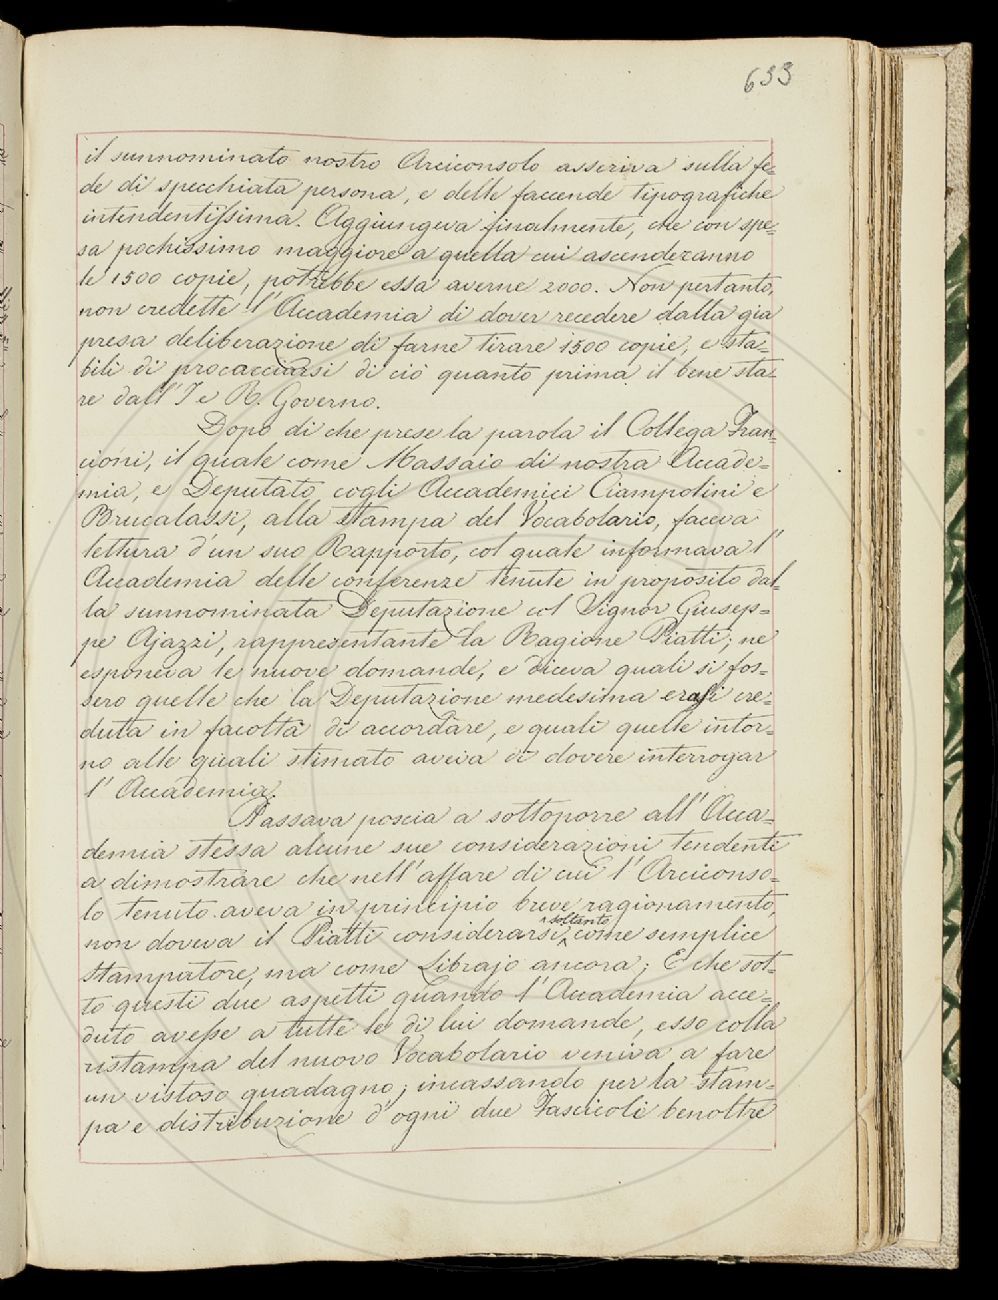 633
il sunnominato nostro Arciconsolo asseriva sulla fe=
de di specchiata persona, e delle faccende tipografiche
intendentissima. Aggiungeva finalmente, che con spe=
sa pochissimo maggiore a quella cui ascenderanno
le 1500 copie, potrebbe essa averne 2000. Non pertanto,
non credette l'Accademia di dover recedere dalla già
presa deliberazione di farne tirare 1500 copie, e sta=
bilì di procacciarsi di ciò quanto prima il bene sta=
re dall'I e R. Governo.
Dopo di che prese la parola il Collega Fran=
cioni, il quale come Massaio di nostra Accade=
mia, e Deputato cogli Accademici Ciampolini e
Brucalassi, alla stampa del Vocabolario, faceva
lettura d'un suo Rapporto, col quale informava l'
Accademia delle conferenze tenute in proposito dal=
la sunnominata Deputazione col Signor Giusep=
pe Ajazzi, rappresentante la Ragione Piatti; ne
esponeva le nuove domande, e diceva quali si fos=
sero quelle che la Deputazione medesima erasi cre=
duta in facoltà di accordare, e quali quelle intor=
no alle quali stimato aveva di dovere interrogar
l'Accademia.
Passava poscia a sottoporre all'Acca=
demia stessa alcune sue considerazioni tendenti
a dimostrare che nell'affare di cui l'Arciconso=
lo tenuto aveva in principio breve ragionamento,
non doveva il Piatti considerarsi soltanto come semplice
stampatore, ma come Librajo ancora; E che sot=
to questi due aspetti quando l'Accademia acce=
duto avesse a tutte le di lui domande, esso colla
ristampa del nuovo Vocabolario veniva a fare
un vistoso guadagno; incassando per la stam=
pa e distribuzione d'ogni due Fascicoli benoltre